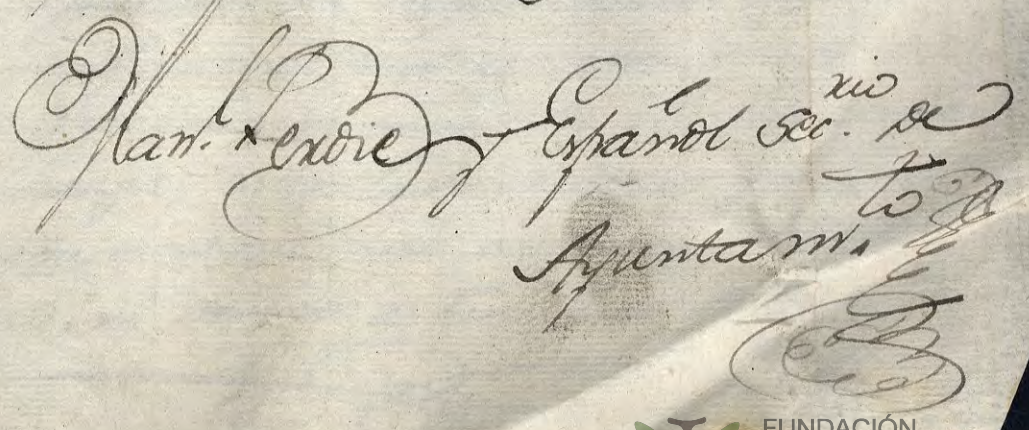 Man.^l Ferdie y Español Sec.^rio de
Ayuntam.^to
FUNDACIÓN